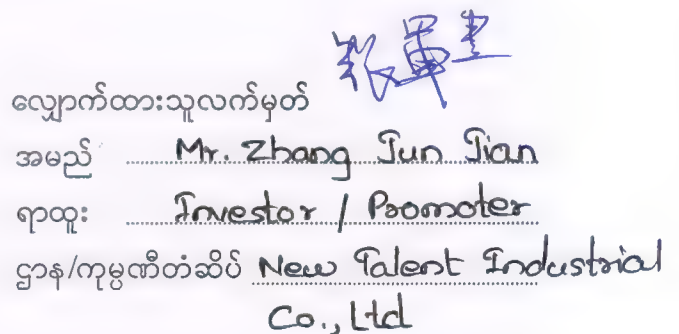 လျှောက်ထားသူလက်မှတ်
အမည် Mr. Zhang Jun Jian
ရာထူး Investor / Promoter
ဌာန/ကုမ္ပဏီတံဆိပ် New Talent Industrial
Co., Ltd